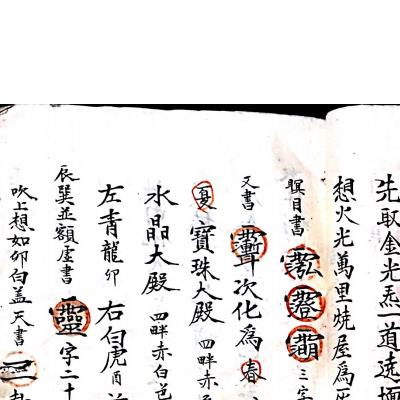 先取金光炁一道遶壇
想火光萬里燒屋為
瞑目書三字
又書次化為春
夏寶珠大殿四畔赤
水晶大殿四畔赤白
左青龍卯右白虎酉
辰巽並額虛書字二十
吹上想如卯白盖天書